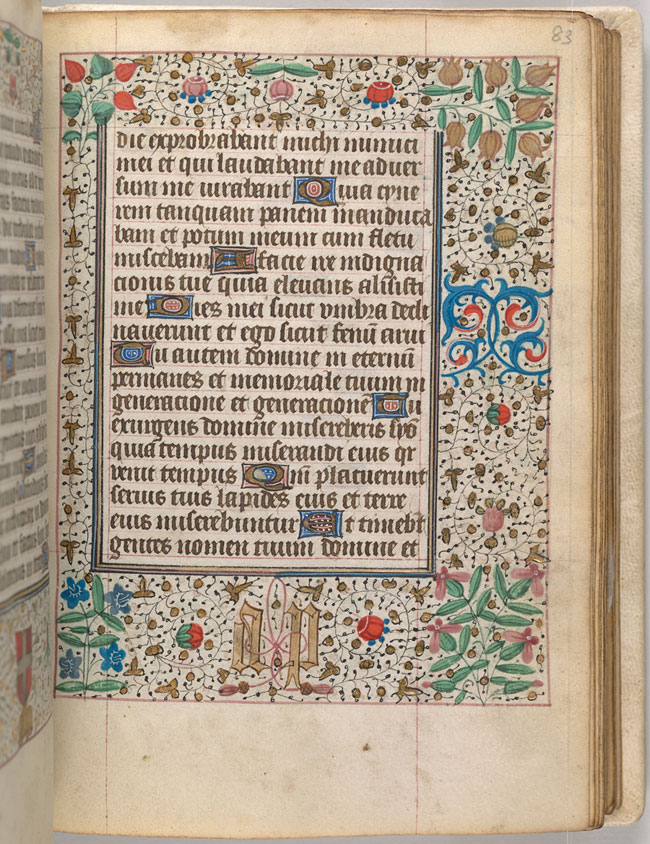 83
die exprobrabant michi inimici
mei et qui laudabant me aduer
sum me iurabant Quia cyne
rem tanquam panem manduca
bam et potum meum cum fletu
miscebam A facie ire indigna
cionis tue quia eleuans alisisti
me Dies mei sicut vmbra decli
nauerunt et ego sicut fenū arui
Tu autem domine in eternū
permanes et memoriale tuum in
generacione et generacione Tu
exurgens domine misereberis syō
quia tempus miserandi eius qr
venit tempus Qm̄ placuerunt
seruis tuis lapides eius et terre
eius miserebuntur Et timebt
gentes nomen tuum domine et
a p